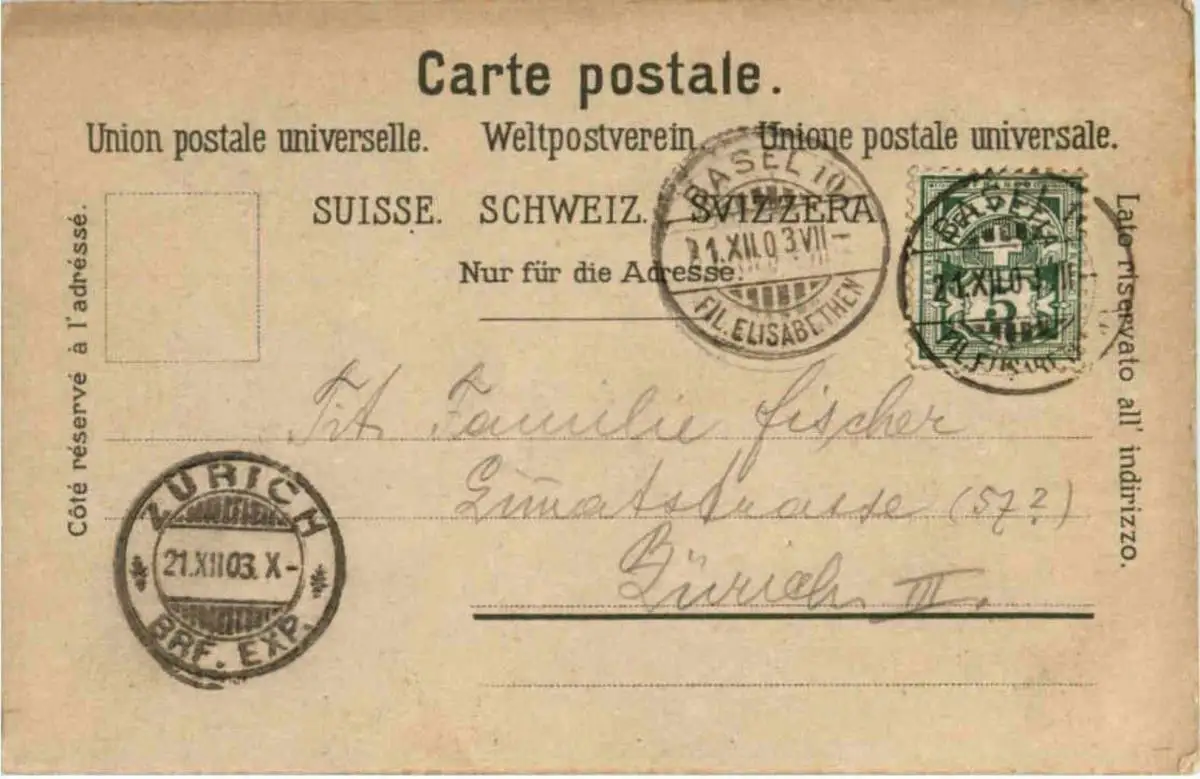 Carte postale.
Union postale universelle. Weltpostverein. Unione postale universale.
SUISSE. SCHWEIZ. SVIZZERA
Nur für die Adresse.
Côté réservé à l'adrésse.
Lato riservato all' indirizzo.
BASEL 10
21.XII.03 VII-
FIL. ELISABETHEN
BASEL
21.XII.03 VII
5
Tit. Familie Fischer
Limatstrasse (57?)
Zürich III.
ZÜRICH
21.XII 03. X-
BRF. EXP.